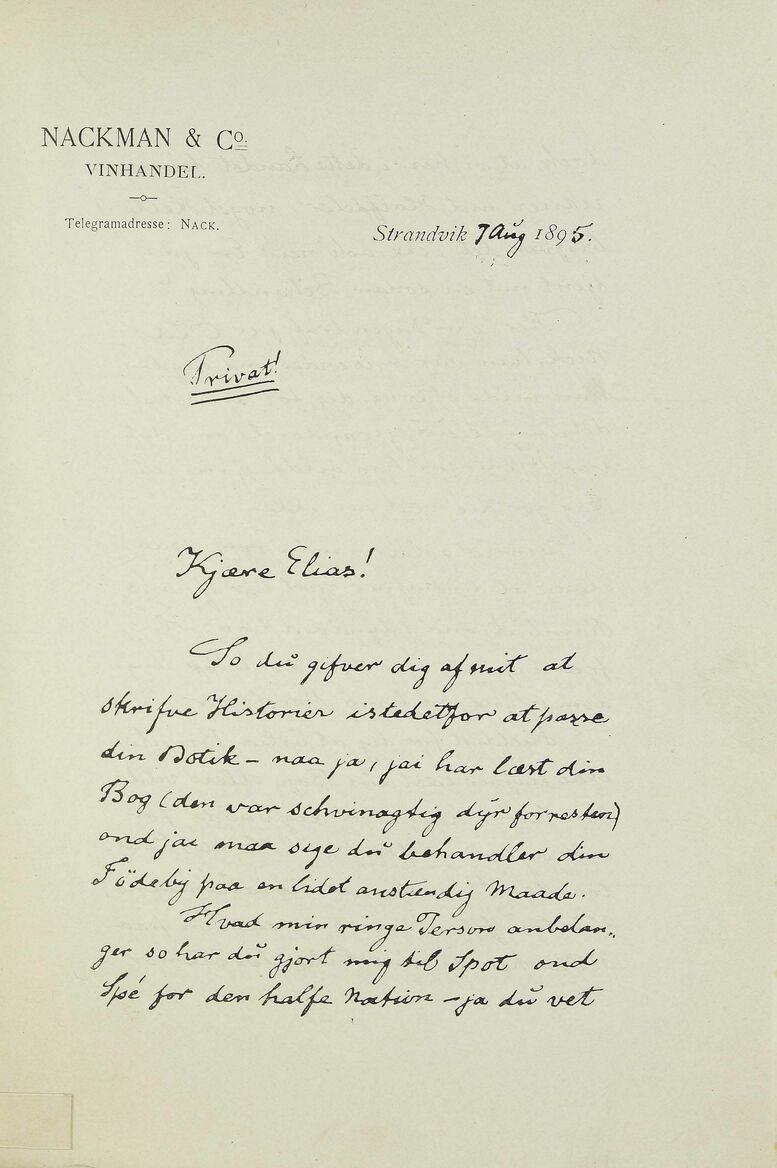 NACKMAN & Co.
VINHANDEL.
Telegramadresse: NACK.
Strandvik 7 Aug 1895.
Privat!
Kjære Elias!
So dŭ gifver dig af mit at
skrifve Historier istedetfor at passe
din Botik – naa ja, jai har læst din
Bog (den var schvinagtig dýr forresten)
ond jai maa sige dŭ behandler din
Födebÿ paa en lidet anstændig Maade.
Hvad min ringe Person anbelan„
ger so har dŭ gjort mig til Spot ond
Spé for den halfe Nation – ja dŭ vet